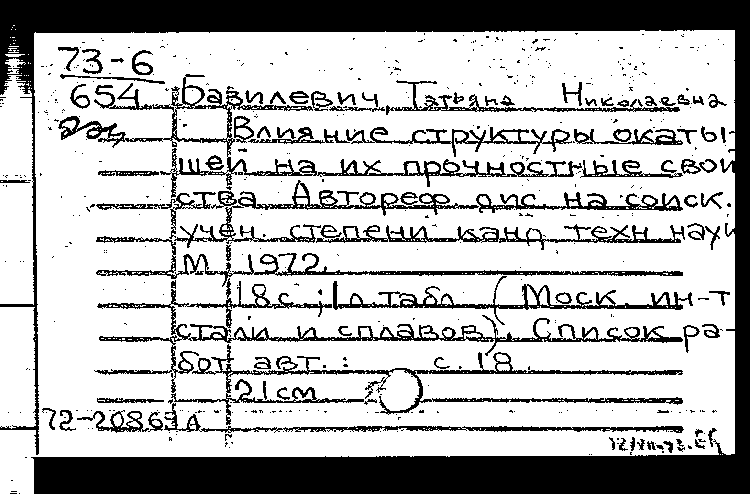 73-6
654 Базилевич, Татьяна Николаевна
Влияние структуры окаты-
шей на их прочностные свой
ства Автореф. дис. на соиск.
учен. степени канд техн наук
М, 1972.
18с.; 1 л. табл (Моск. ин-т
стали и сплавов). Список ра-
бот авт.: с. 18.
21см
72-20869А